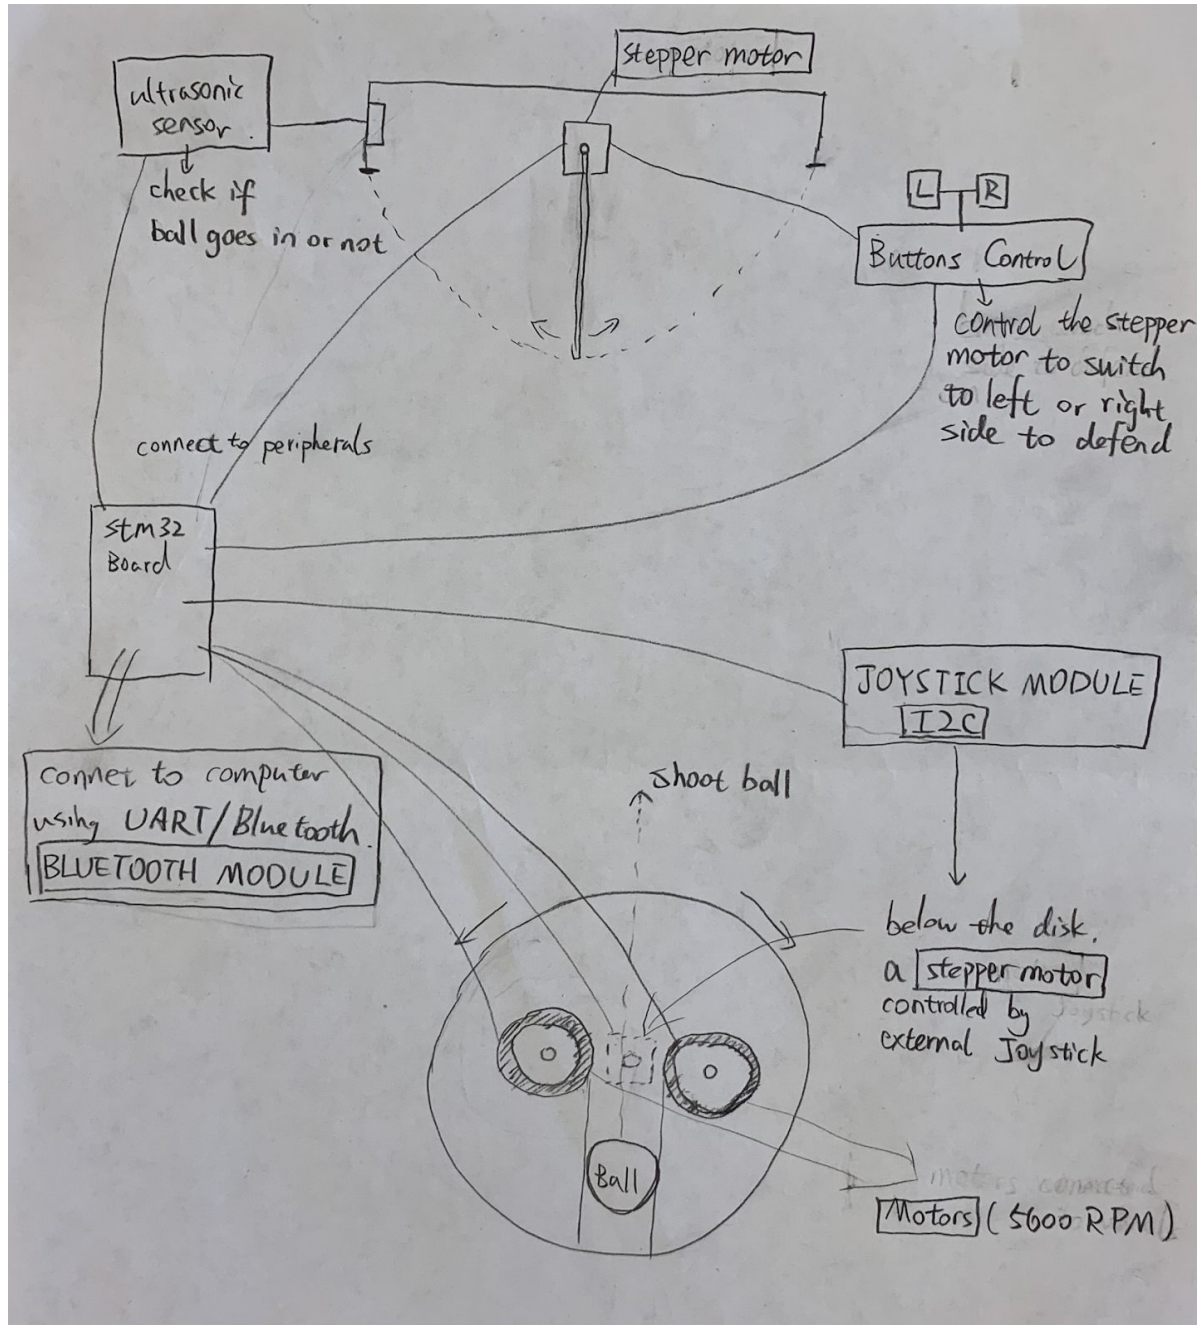 stepper motor
ultrasonic
sensor.
check if
ball goes in or not
L R
Buttons Control
control the stepper
motor to switch
to left or right
side to defend
connect to peripherals
stm32
Board
JOYSTICK MODULE
I2C
connet to computer
using UART/Bluetooth.
BLUETOOTH MODULE
shoot ball
below the disk.
a stepper motor
controlled by Joystick
external Joystick
Ball
motors connected
Motors (5600 RPM)